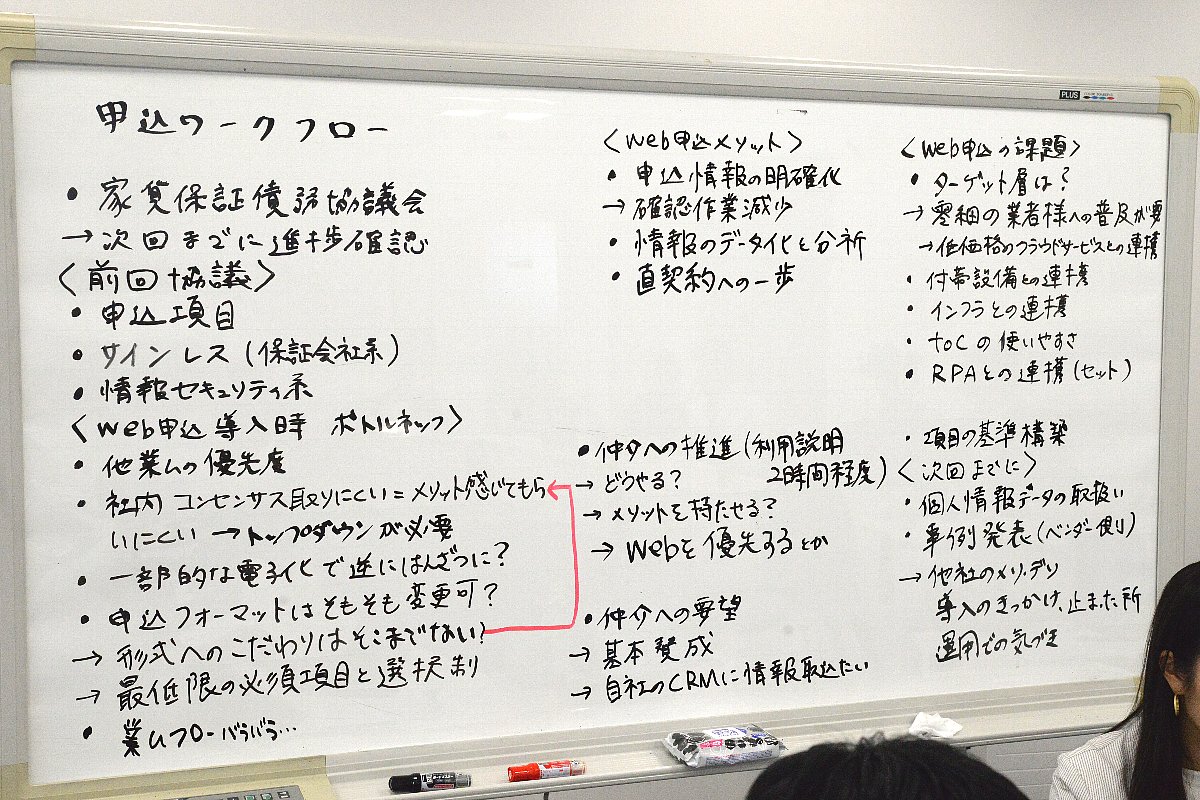 申込ワークフロー
・家賃保証債務協議会
→次回までに進捗確認
〈前回協議〉
・申込項目
・サインレス(保証会社系)
・情報セキュリティ系
〈Web申込導入時 ボトルネック〉
・他業ムの優先度
・社内コンセンサス取りにくい=メリット感じてもら
いにくい→トップダウンが必要
・一部的な電子化で逆にはんざつに?
・申込フォーマットはそもそも変更可?
→形式へのこだわりはそこまでない?
→最低限の必須項目と選択制
・業ムフローバラバラ…
〈Web申込メリット〉
・申込情報の明確化
→確認作業減少
・情報のデータ化と分析
・直契約への一歩
・仲介への推進(利用説明
2時間程度)
→どうやる?
→メリットを持たせる?
→Webを優先するとか
・仲介への要望
→基本賛成
→自社のCRMに情報取込たい
PLUS
〈Web申込の課題〉
・ターゲット層は?
→零細の業者様への普及が要
→低価格のクラウドサービスとの連携
・付帯設備との連携
・インフラとの連携
・toCの使いやすさ
・RPAとの連携(セット)
・項目の基準構築
〈次回までに〉
・個人情報データの取扱い
・事例発表(ベンダー側)
→他社のメリ・デリ
導入のきっかけ、止まった所
運用での気づき